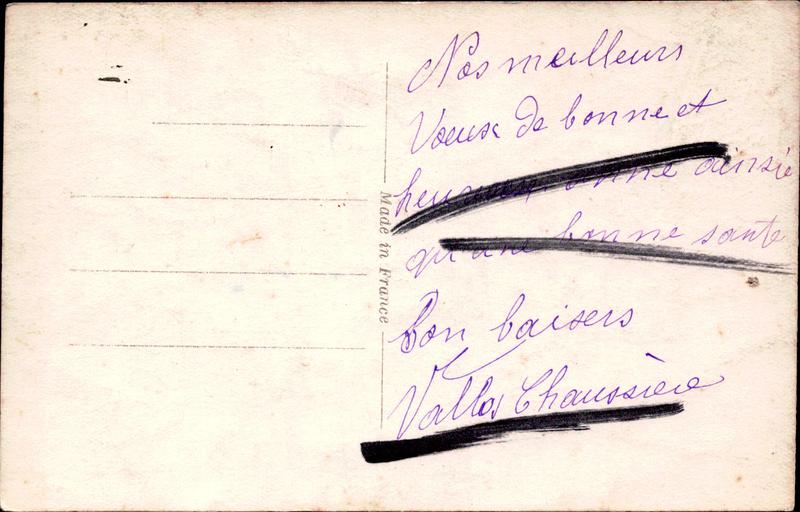 Nos meilleurs
Voeux de bonne et
heureuse anné ainsie
qu'une bonne sante
Bon baisers
Vallos Chaussière
Made in France